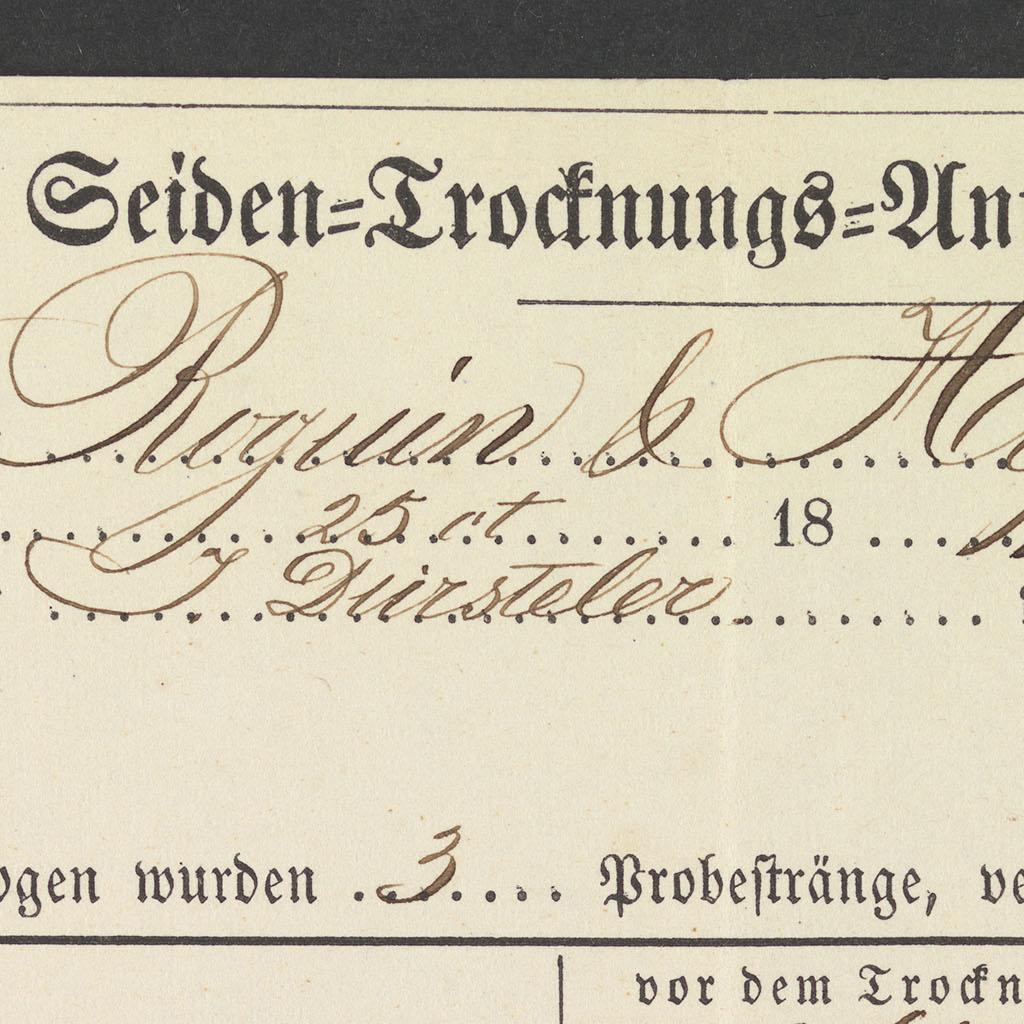 Seiden=Trocknungs=An
Roguin &
25 ct 18
J Dürsteler
ogen wurden 3 Probestränge, ve
vor dem Trockn